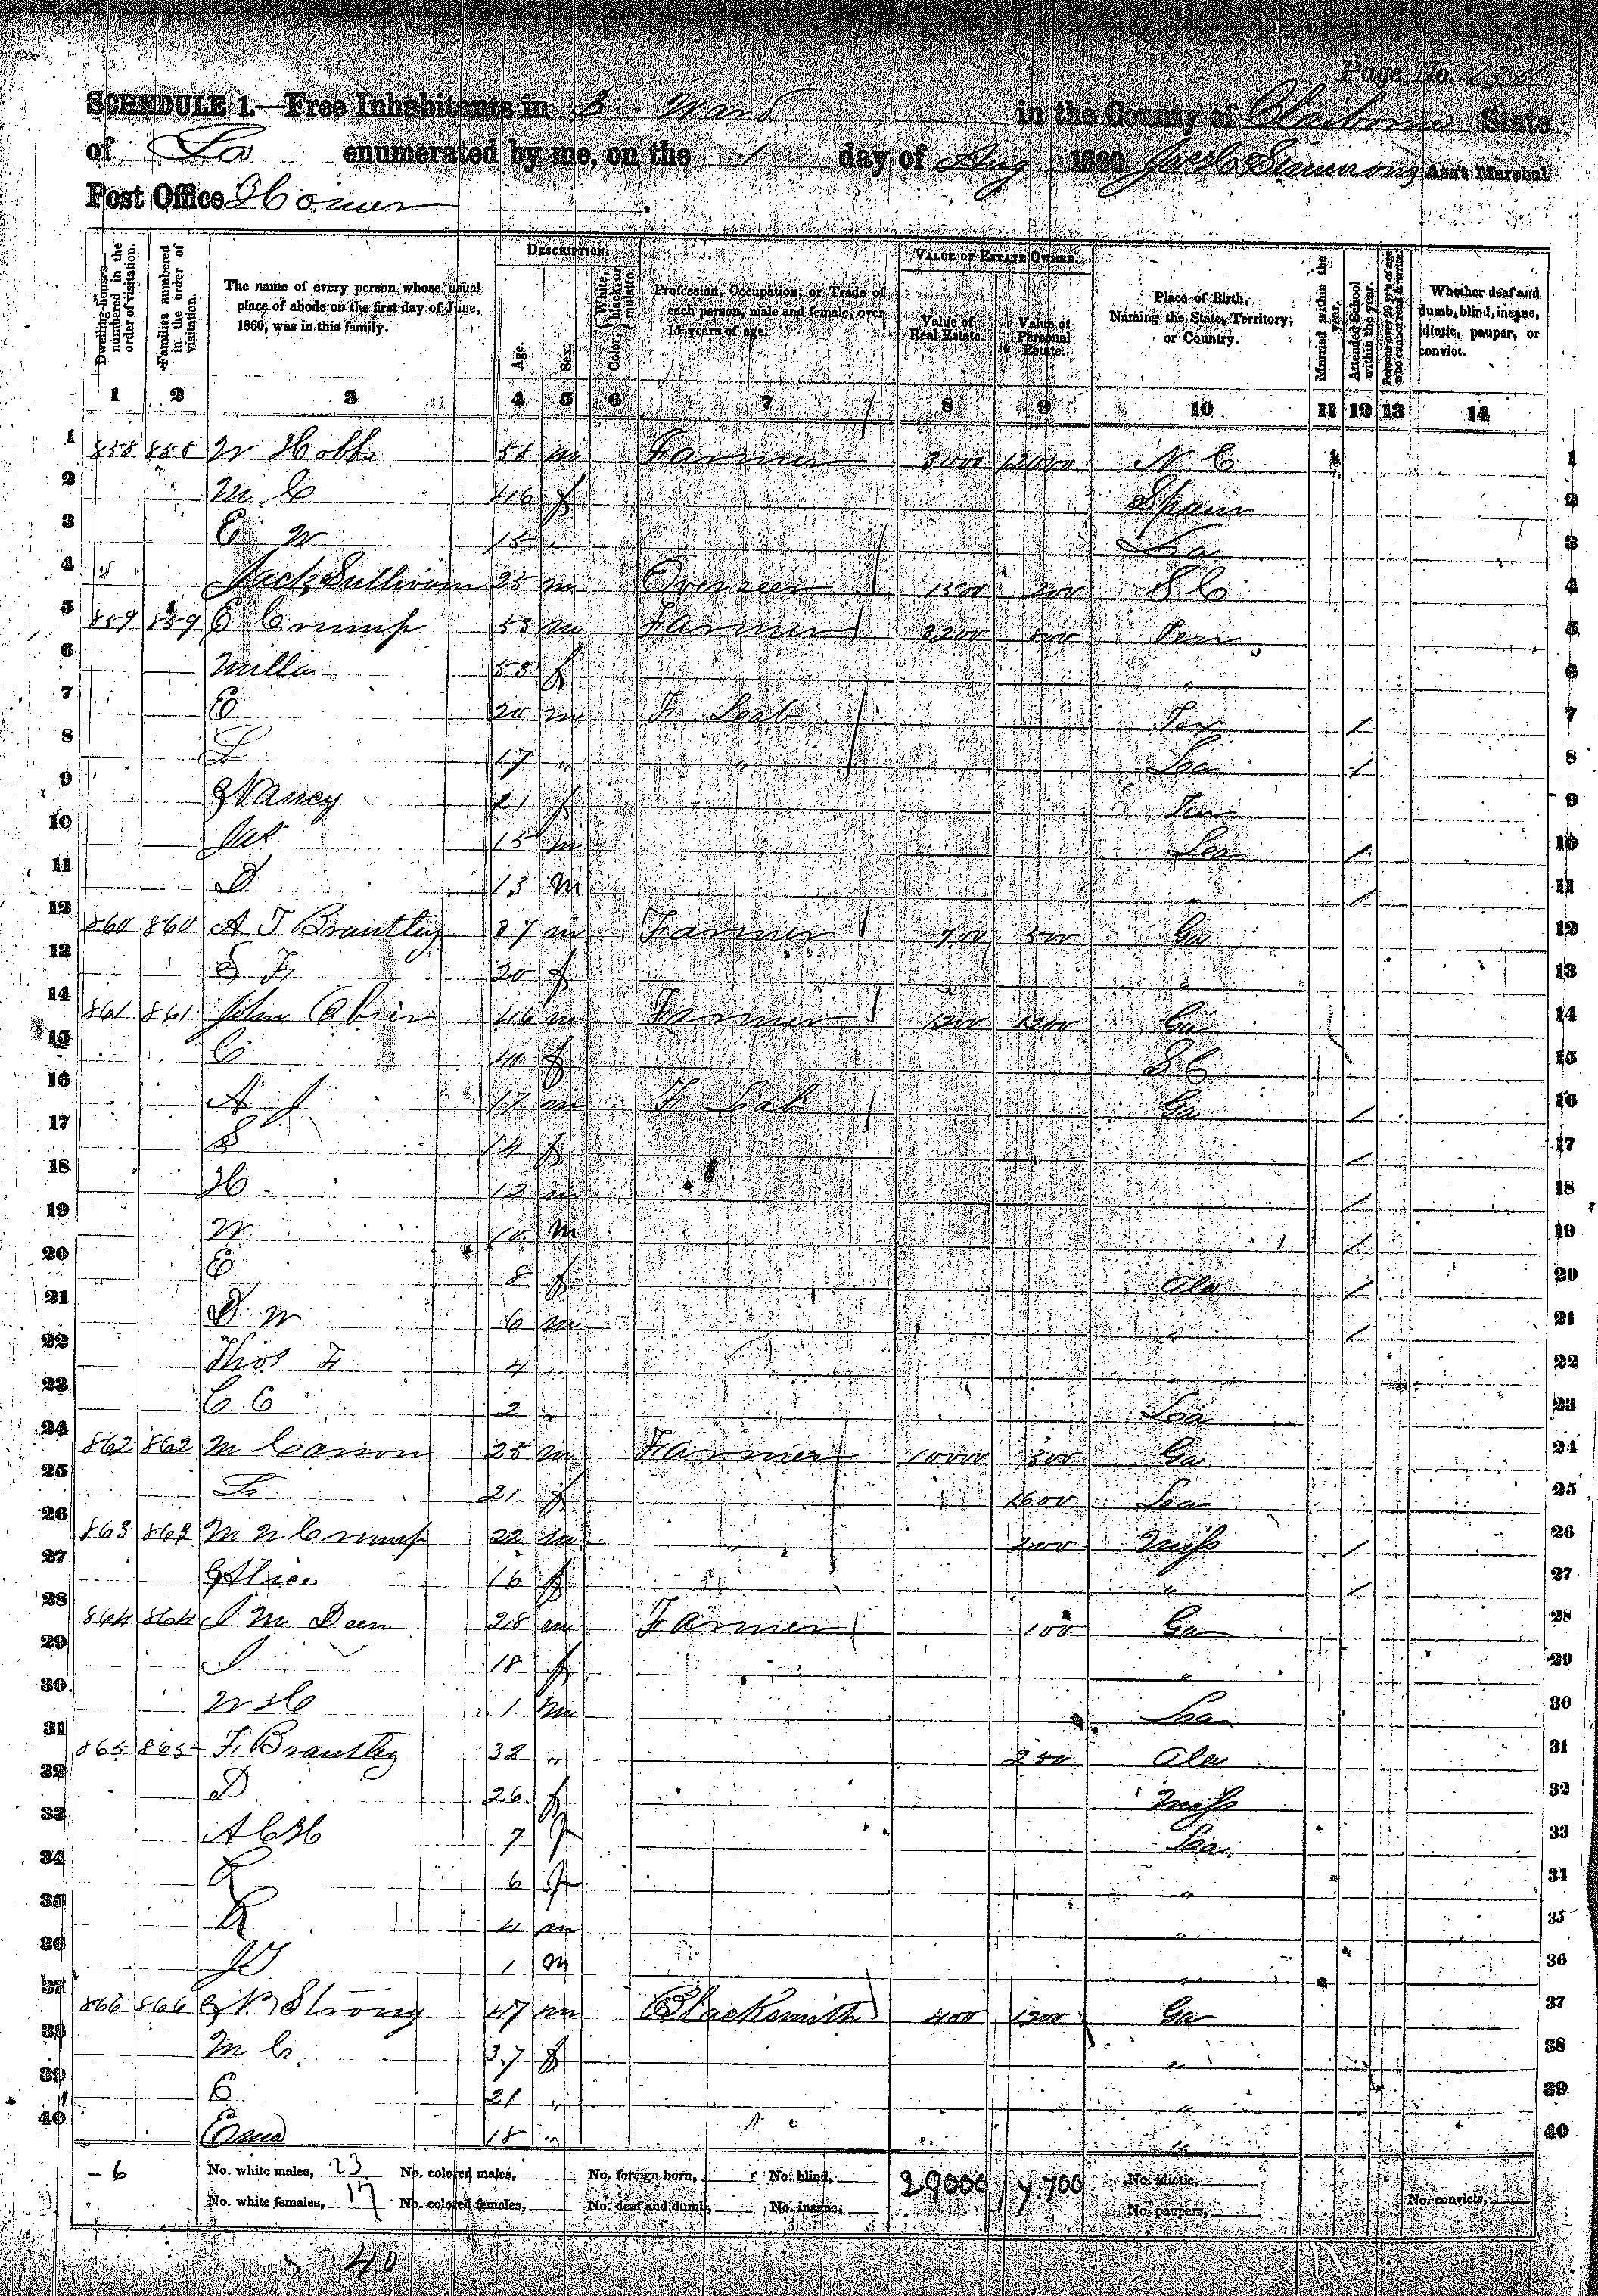 Page No.
SCHEDULE 1.—Free Inhabitants in 3 Ward in the County of Claiborne State
of La enumerated by me, on the 1 day of Aug 1860. Jacob Simmons Ass't Marshal
Post Office Homer
Dwelling-houses—numbered in the order of visitation.
Families numbered in the order of visitation.
The name of every person whose usual place of abode on the first day of June, 1860, was in this family.
DESCRIPTION.
Age.
Sex.
Color, {White, black, or mulatto.
Profession, Occupation, or Trade of each person, male and female, over 15 years of age.
VALUE OF ESTATE OWNED.
Value of Real Estate.
Value of Personal Estate.
Place of Birth, Naming the State, Territory, or Country.
Married within the year.
Attended School within the year.
Persons over 20 y'rs of age who cannot read & write.
Whether deaf and dumb, blind, insane, idiotic, pauper, or convict.
1 2 3 4 5 6 7 8 9 10 11 12 13 14
1 858 858 W Hobbs 58 m Farmer 3000 12000 N C 1
2 M C 46 f Spain 2
3 E W 15 " La 3
4 Jack Sullivan 25 m Overseer 1500 200 S C 4
5 859 859 E Crump 53 m Farmer 2200 500 Ten 5
6 Milla 53 f " 6
7 E 20 m F Lab Ten / 7
8 L 17 " " Loa / 8
9 Nancy 21 f Ten 9
10 Jas 15 m Loa / 10
11 D 13 m / 11
12 860 860 A J Brantley 27 m Farmer 700 500 Ga 12
13 S F 20 f " 13
14 861 861 John Obrien 46 m Farmer 1200 1200 Ga 14
15 C 40 f S C 15
16 A J 17 m F Lab Ga / 16
17 S 14 f / 17
18 H 12 m / 18
19 W 10 m / 19
20 E 8 f Ala / 20
21 D W 6 m " / 21
22 Thos F 4 " 22
23 C C 2 " Loa 23
24 862 862 M Carson 25 m Farmer 10000 300 Ga 24
25 L 21 f 1600 Loa 25
26 863 863 M N Crump 22 m 200 Miss / 26
27 Alice 16 f " / 27
28 864 864 J M Deen 28 m Farmer 100 Ga 28
29 J 18 f " 29
30 W H 1 m Loa 30
31 865 865 F Brantley 32 " 250 Ala 31
32 D 26 f Miss 32
33 A C H 7 f Loa 33
34 6 f " 34
35 4 m " 35
36 J J 1 m " 36
37 866 866 Strong 47 m Blacksmith 400 1200 Ga 37
38 M C 37 f " 38
39 E 21 " " 39
40 Ema 18 " " 40
- 6 No. white males, 23 No. colored males, No. foreign born, No. blind, 29000 No. idiotic,
No. white females, 17 No. colored females, No. deaf and dumb, No. insane, No. paupers, No. convicts,
40